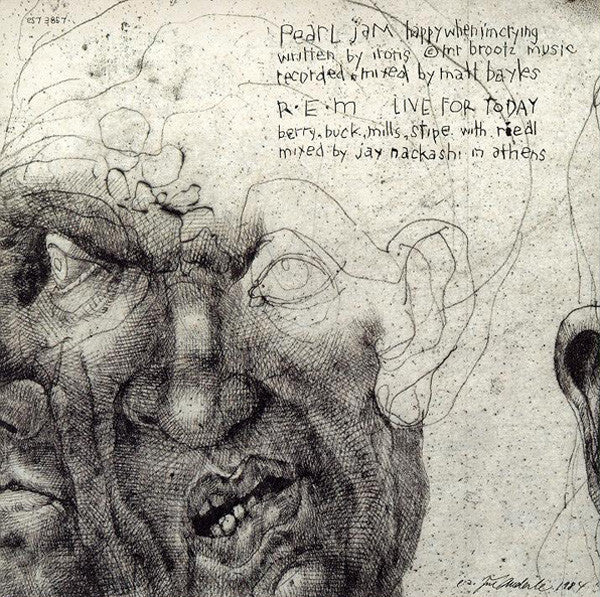 CS7 3867
PeaRL jaM happywhenimcrying
written by irons ©mr brootz music
recorded & mixed by matt bayles
R•E•M LIVE FOR TODAY
berry, buck, mills, stipe with riedl
mixed by jay nackashi in athens
1984